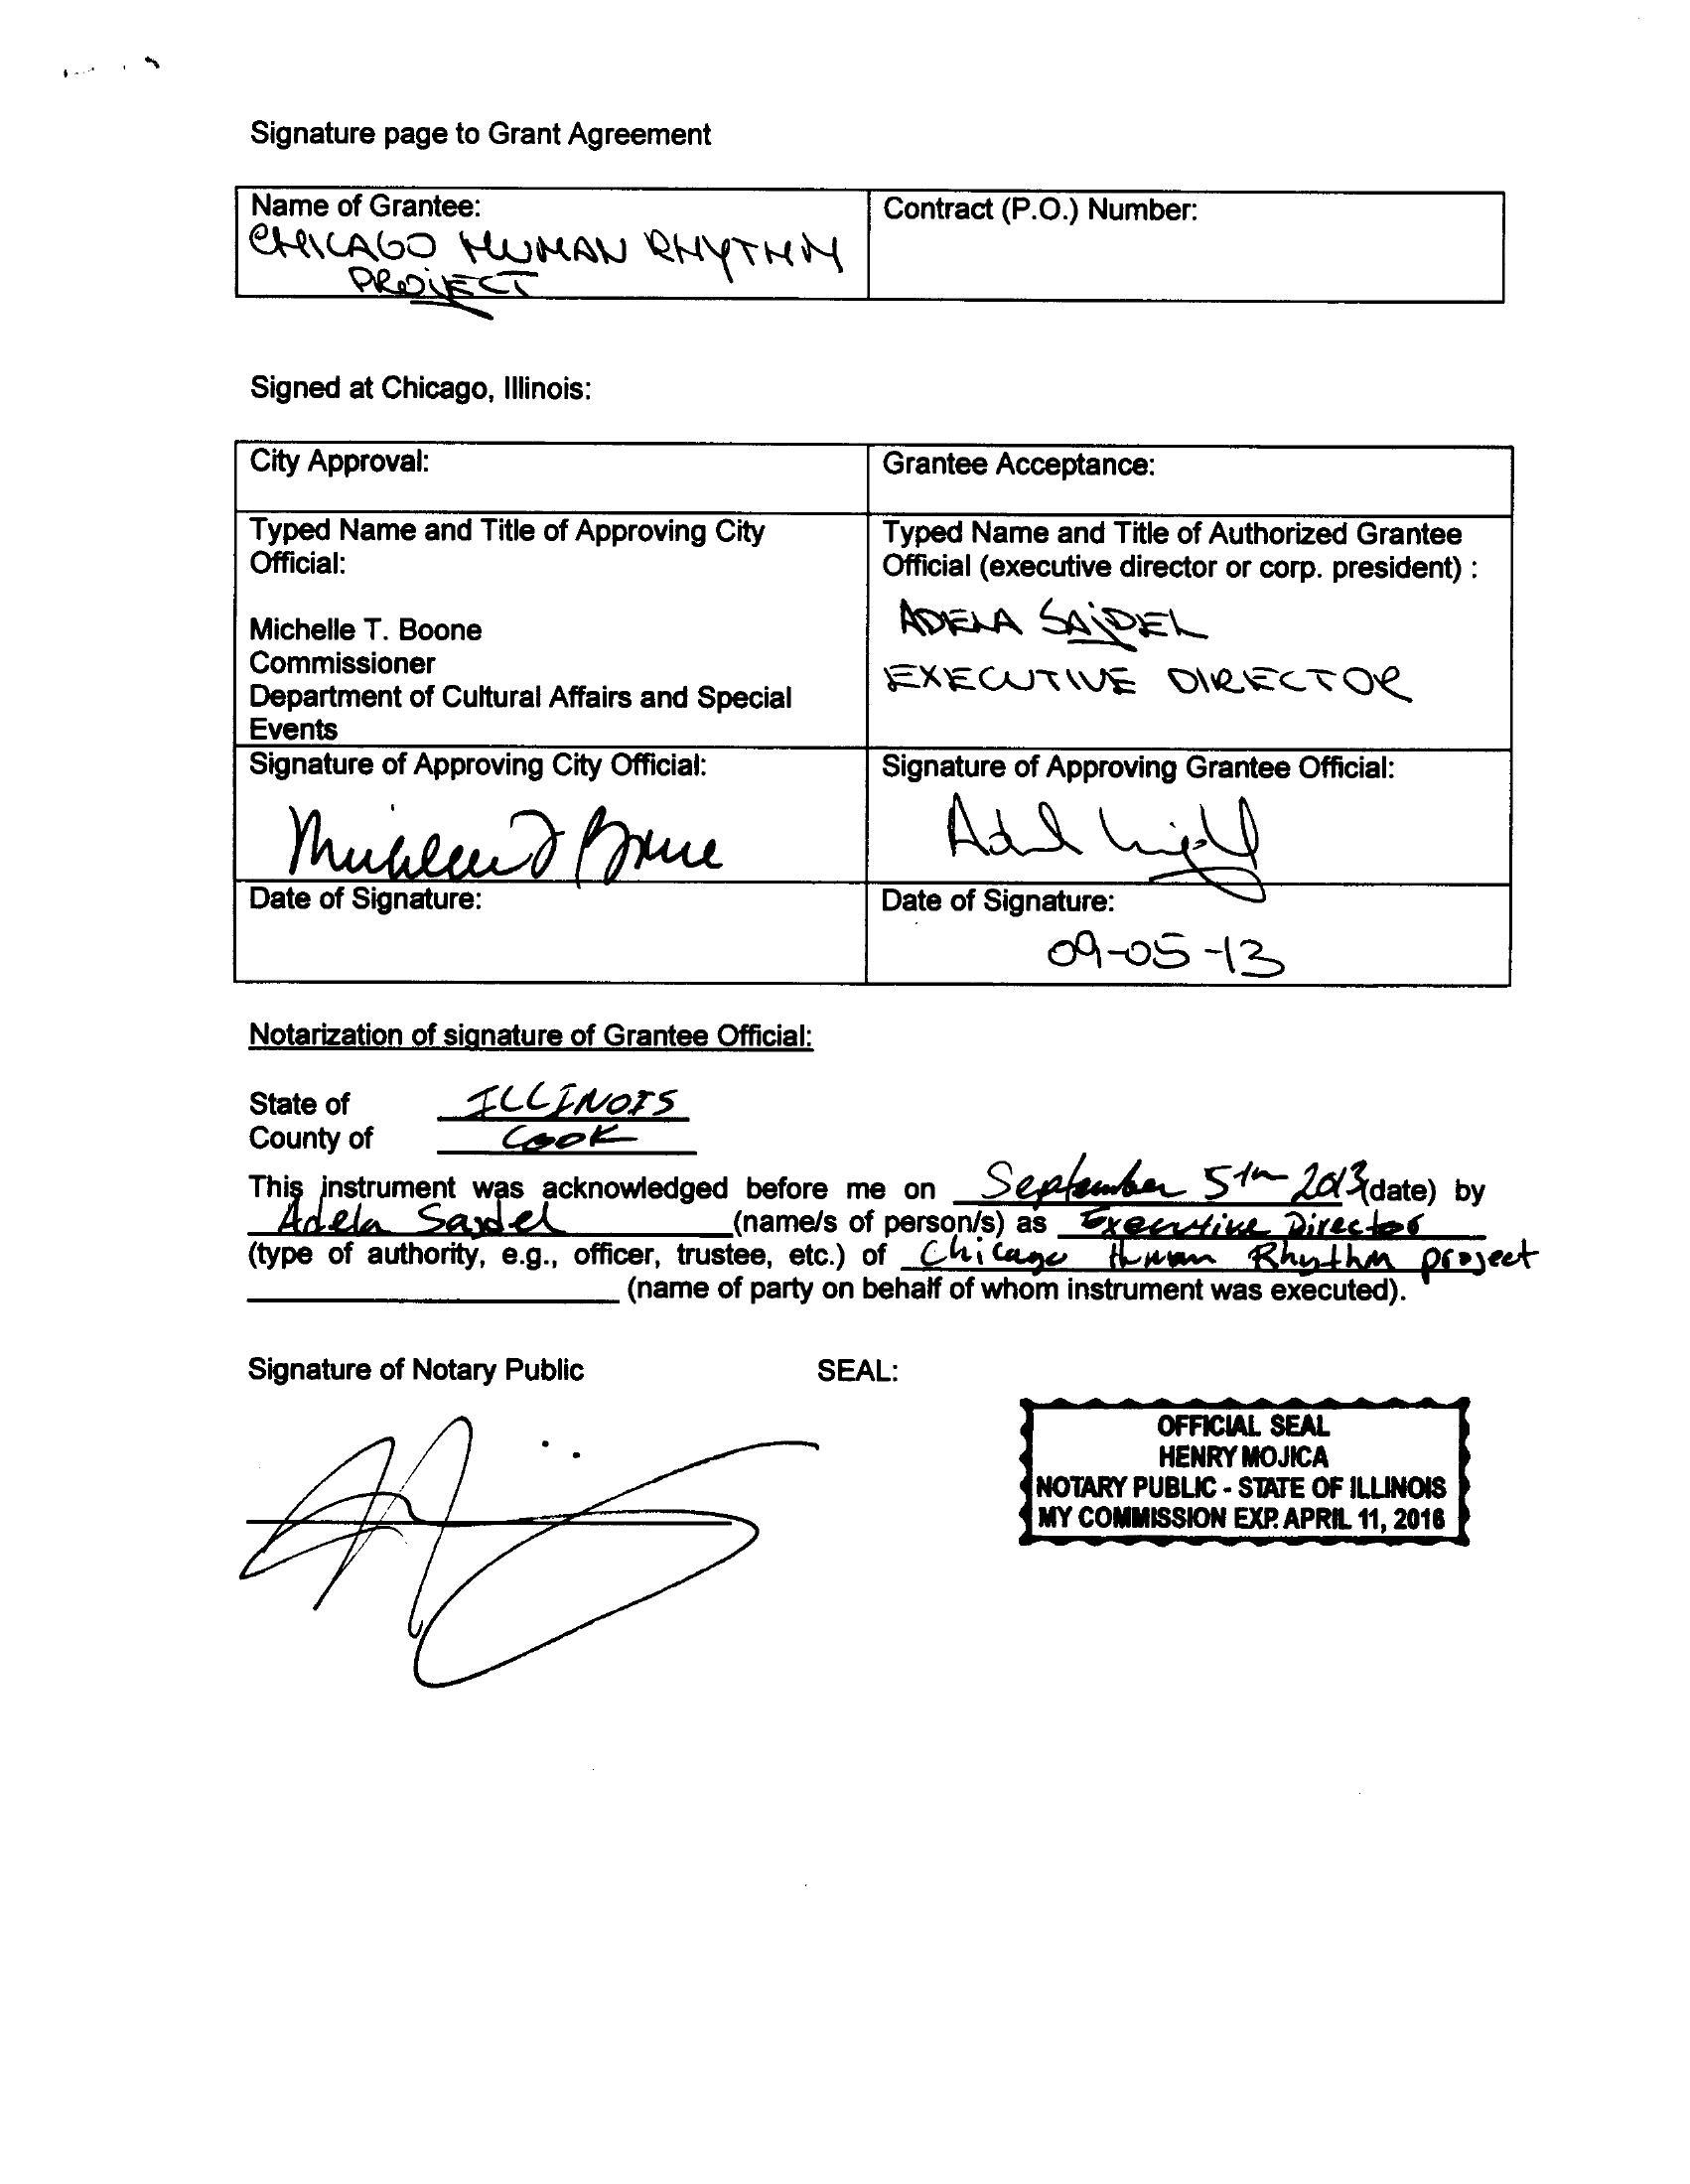 Signature page to Grant Agreement
Name of Grantee:
CHICAGO HUMAN RHYTHM
PROJECT
Contract (P.O.) Number:
Signed at Chicago, Illinois:
City Approval:
Grantee Acceptance:
Typed Name and Title of Approving City
Official:
Michelle T. Boone
Commissioner
Department of Cultural Affairs and Special
Events
Typed Name and Title of Authorized Grantee
Official (executive director or corp. president) :
ADELA SAJDEL
EXECUTIVE DIRECTOR
Signature of Approving City Official:
Michelle T Boone
Signature of Approving Grantee Official:
Date of Signature:
Date of Signature:
09-05-13
Notarization of signature of Grantee Official:
State of ILLINOIS
County of COOK
This instrument was acknowledged before me on September 5th 2013 (date) by
Adela Sajdel (name/s of person/s) as Executive Director
(type of authority, e.g., officer, trustee, etc.) of Chicago Human Rhythm project
(name of party on behalf of whom instrument was executed).
Signature of Notary Public
SEAL:
OFFICIAL SEAL
HENRY MOJICA
NOTARY PUBLIC - STATE OF ILLINOIS
MY COMMISSION EXP. APRIL 11, 2016